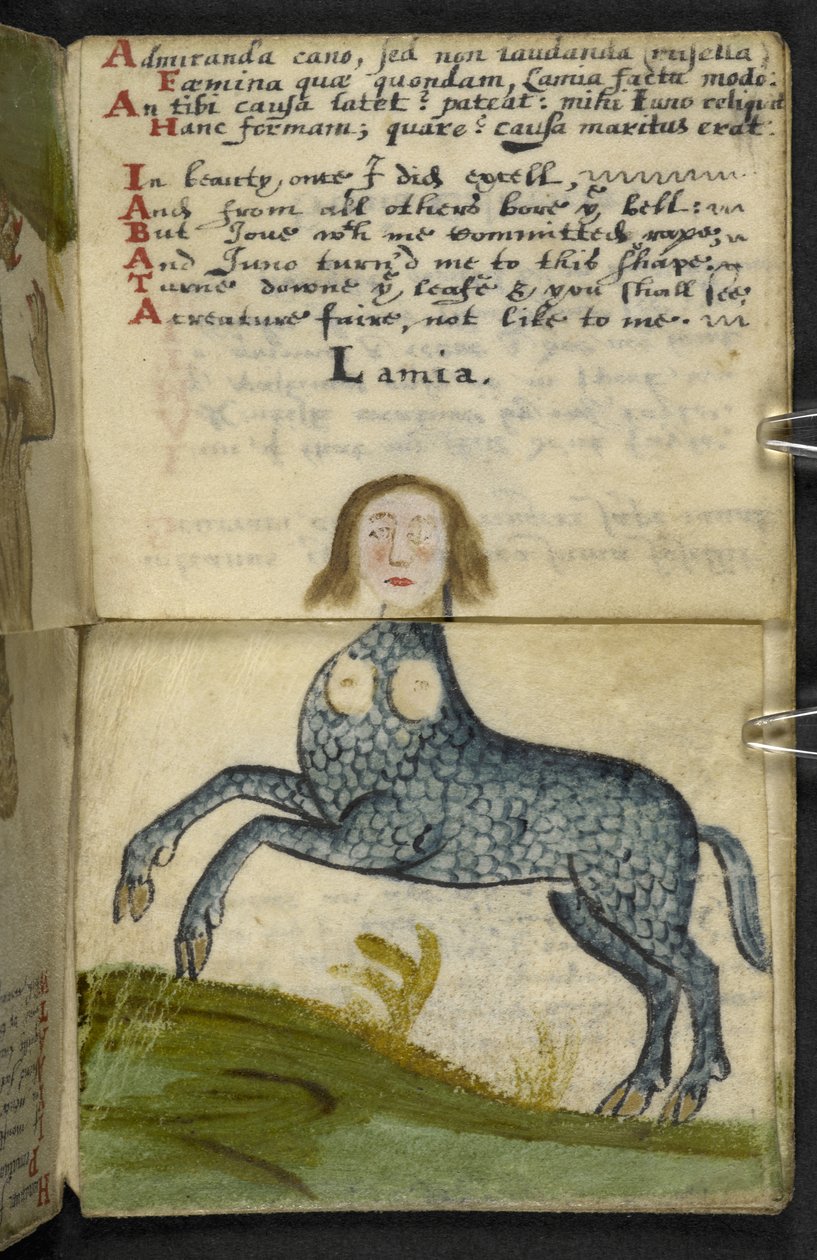 Admiranda cano, sed non laudanda (misella)
Fæmina quæ quondam, Lamia facta modo:
An tibi causa latet? pateat: mihi Iuno reliquit
Hanc formam; quare? causa maritus erat.
In beauty once I did excell,
And from all others bore yᵉ bell:
But Joue wth me committed rape;
And Juno turn'd me to this shape.
Turne downe yᵉ leafe & you shall see
A creature faire, not like to me.
Lamia.